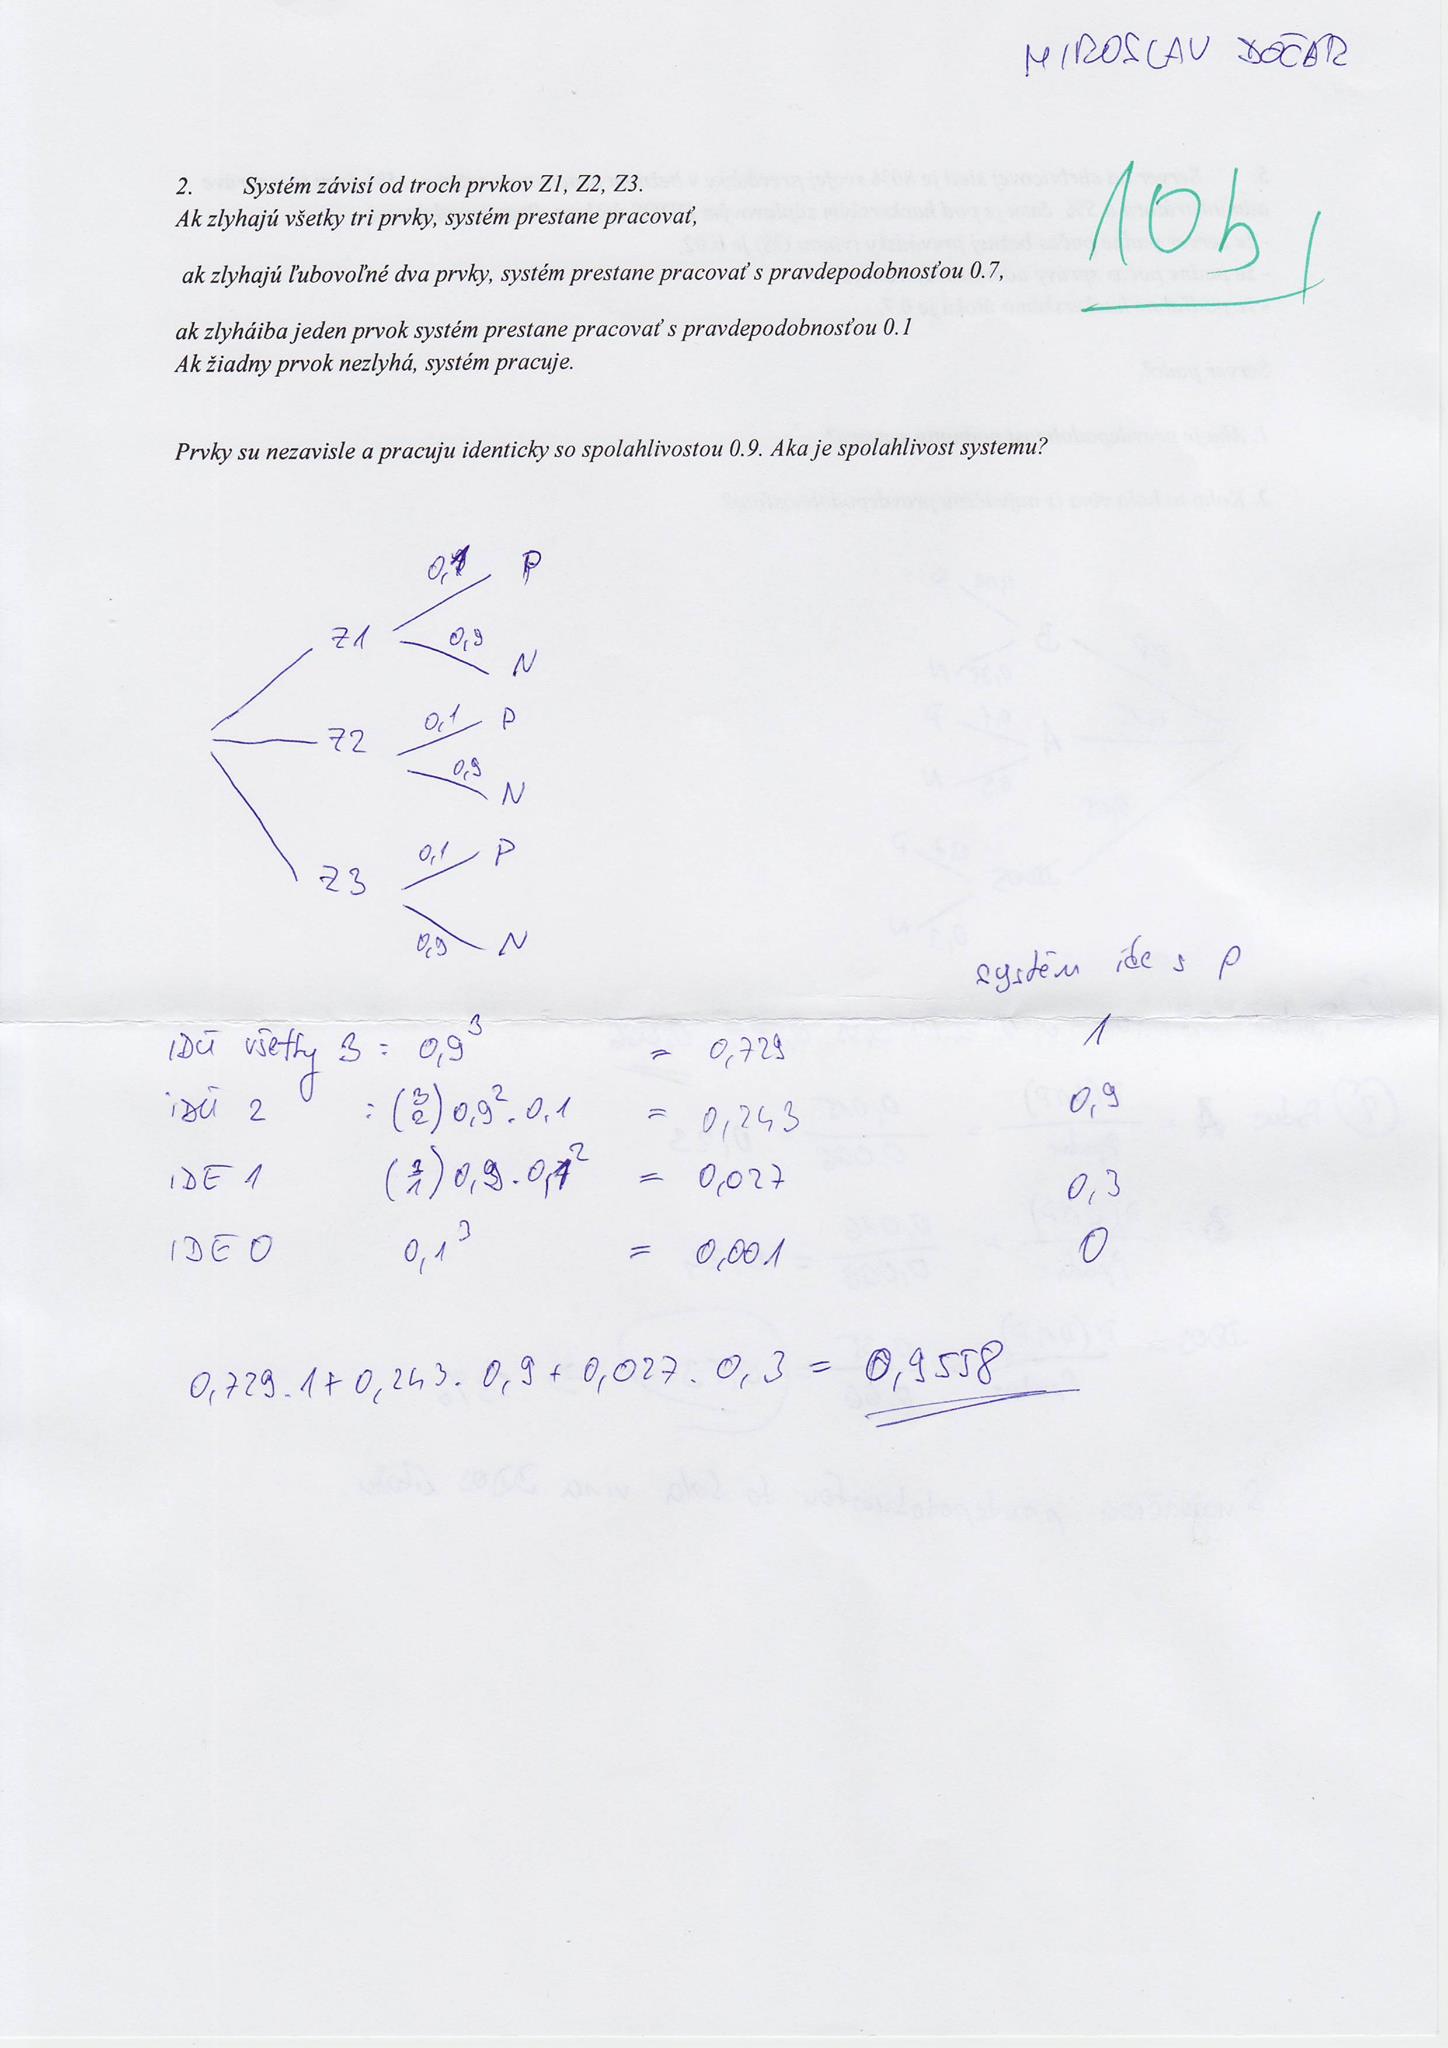 MIROSLAV DOČÁR
10b
2. Systém závisí od troch prvkov Z1, Z2, Z3.
Ak zlyhajú všetky tri prvky, systém prestane pracovať,
ak zlyhajú ľubovoľné dva prvky, systém prestane pracovať s pravdepodobnosťou 0.7,
ak zlyháiba jeden prvok systém prestane pracovať s pravdepodobnosťou 0.1
Ak žiadny prvok nezlyhá, systém pracuje.
Prvky su nezavisle a pracuju identicky so spolahlivostou 0.9. Aka je spolahlivost systemu?
0,1 P
Z1 0,9 N
0,1 P
Z2 0,9 N
0,1 P
Z3
0,9 N
systém ide s p
IDÚ všetky 3 : 0,9³ = 0,729 1
IDÚ 2 : (3 2) 0,9² . 0,1 = 0,243 0,9
IDE 1 (3 1) 0,9 . 0,1² = 0,027 0,3
IDE 0 0,1³ = 0,001 0
0,729 . 1 + 0,243 . 0,9 + 0,027 . 0,3 = 0,9558